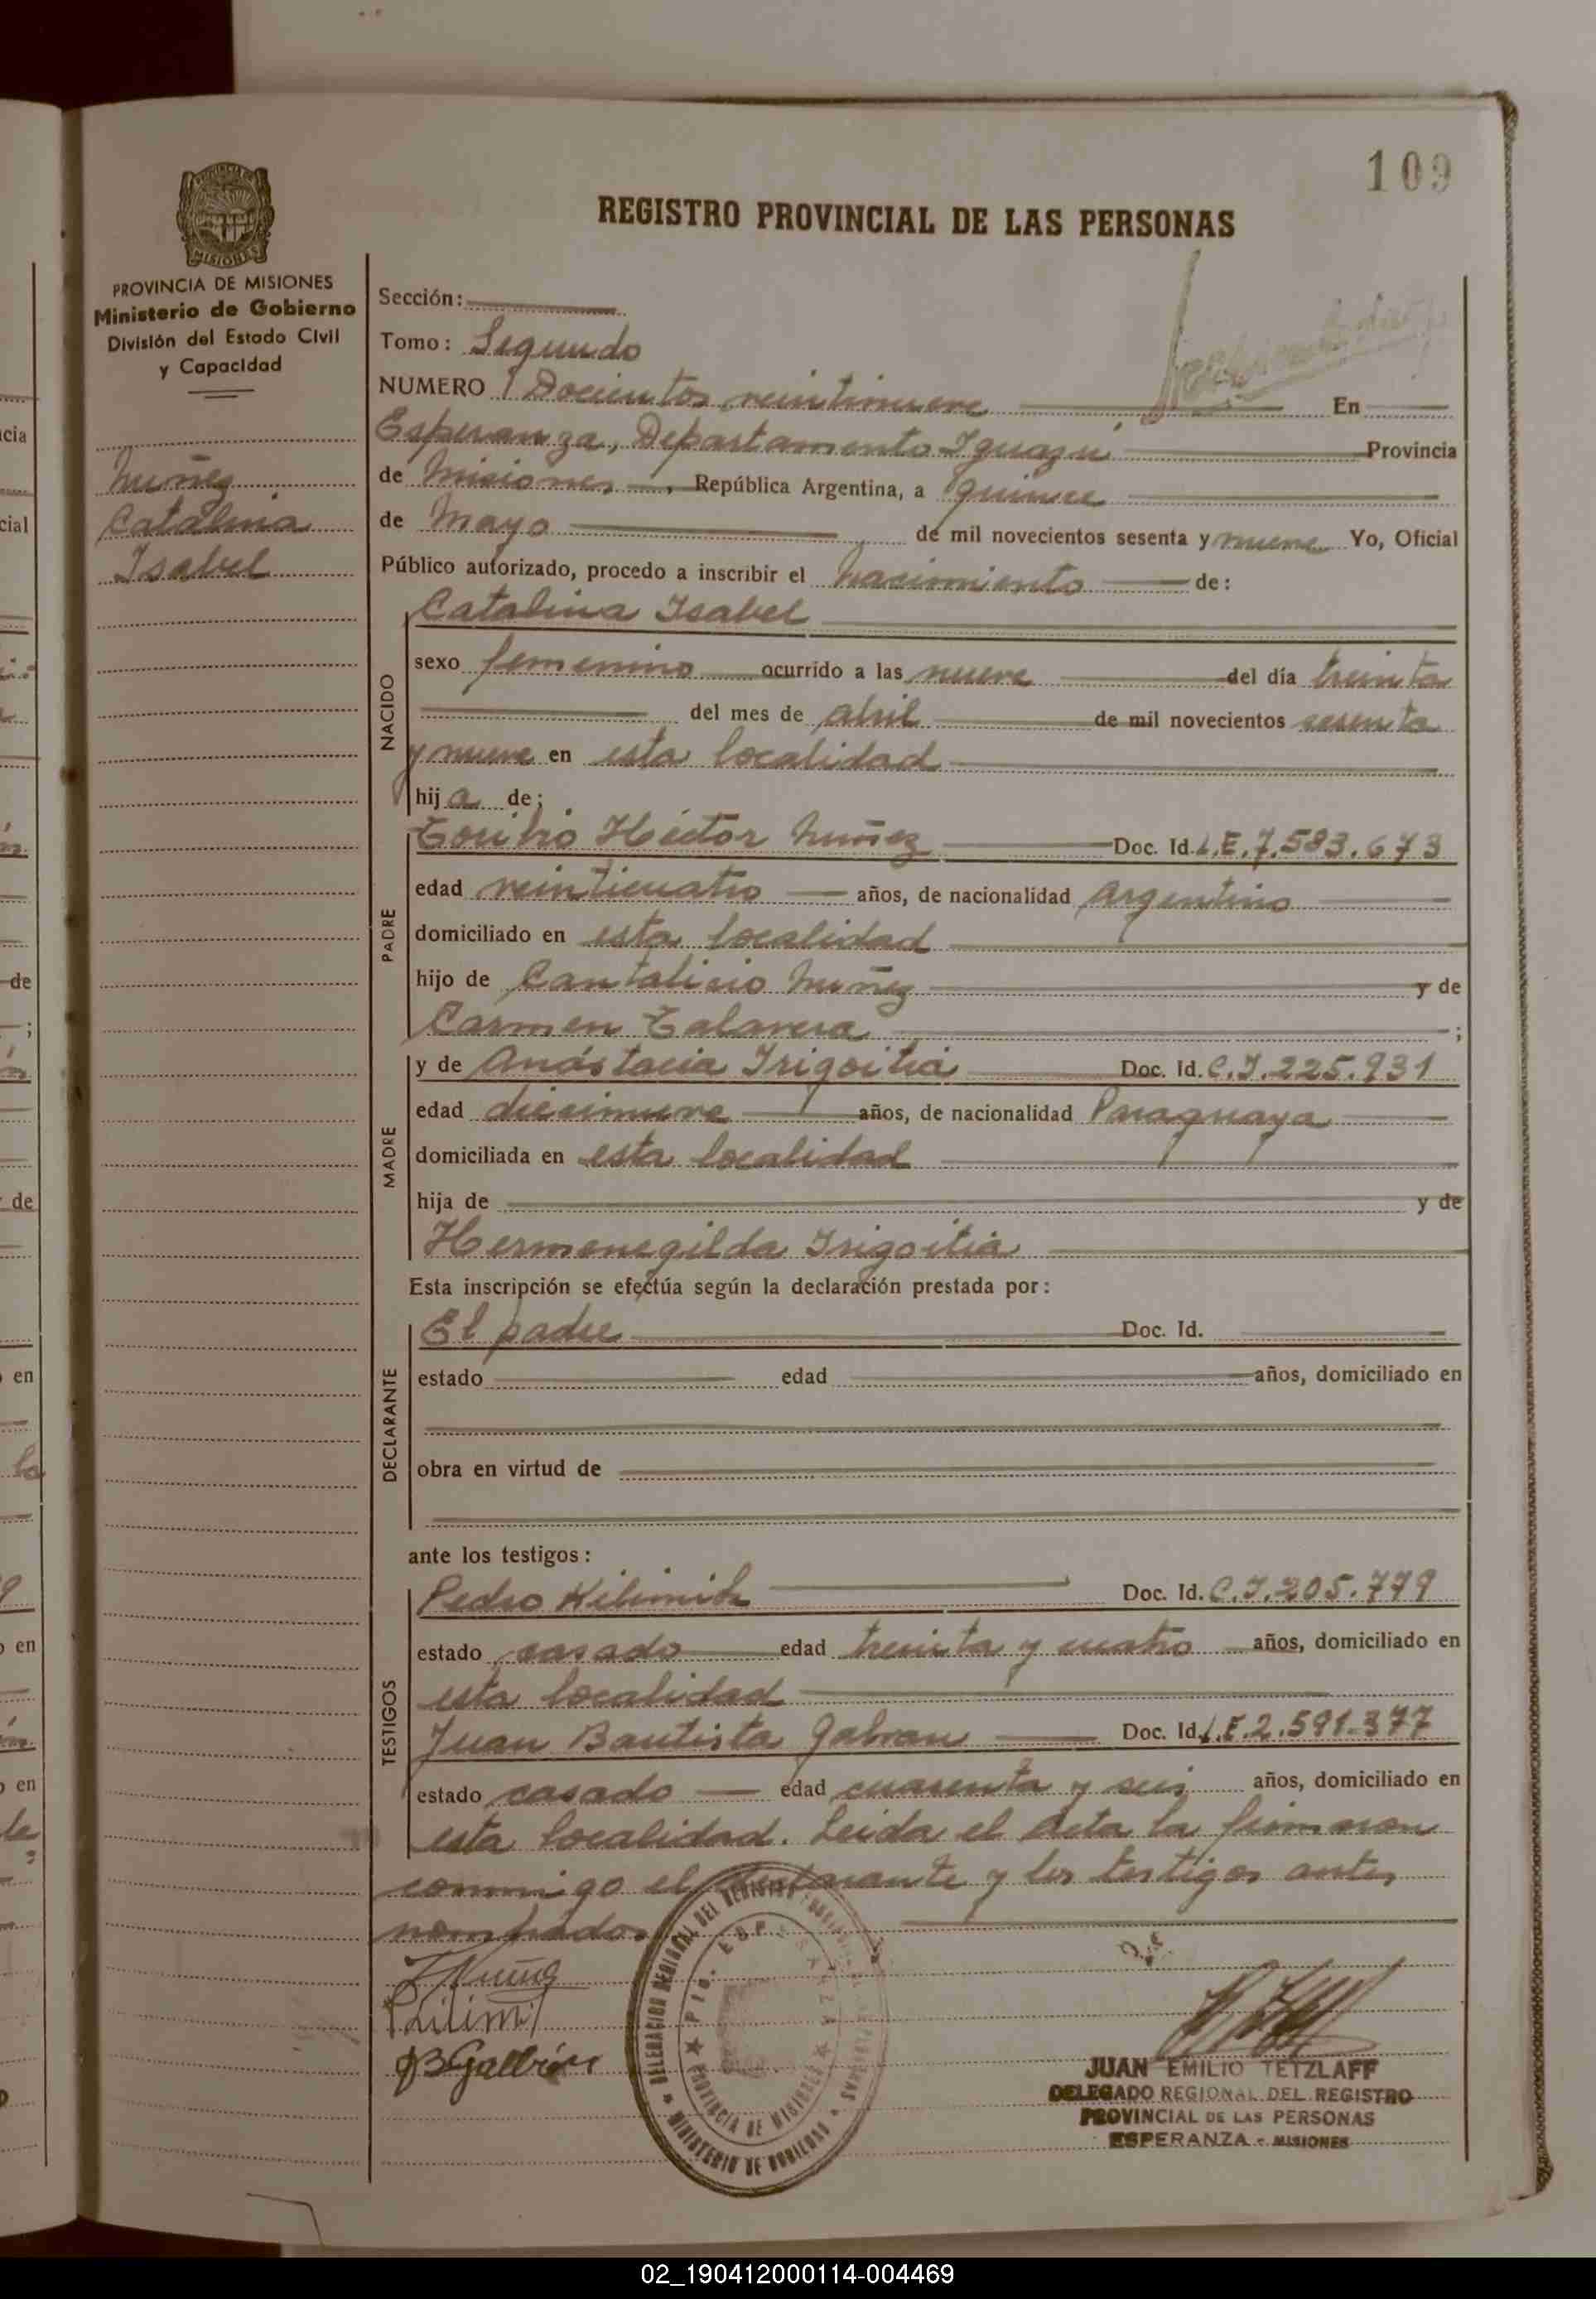 109
REGISTRO PROVINCIAL DE LAS PERSONAS
PROVINCIA DE MISIONES
Ministerio de Gobierno
División del Estado Civil
y Capacidad
Nuñez
Catalina
Isabel
Sección:
Tomo: Segundo
NUMERO Docientos veintinueve En
Esperanza, Departamento Iguazú Provincia
de Misiones, República Argentina, a quince
de Mayo de mil novecientos sesenta y nueve Yo, Oficial
Público autorizado, procedo a inscribir el nacimiento de:
Catalina Isabel
NACIDO
sexo femenino ocurrido a las nueve del día treinta
del mes de abril de mil novecientos sesenta
y nueve en esta localidad
hija de:
PADRE
Toribio Héctor Nuñez Doc. Id. L.E.7.583.673
edad veinticuatro años, de nacionalidad Argentino
domiciliado en esta localidad
hijo de Cantalicio Nuñez y de
Carmen Talavera ;
MADRE
y de Anástacia Irigoitia Doc. Id. C.I.225.931
edad diecinueve años, de nacionalidad Paraguaya
domiciliada en esta localidad
hija de y de
Hermenegilda Irigoitia
Esta inscripción se efectúa según la declaración prestada por:
DECLARANTE
El padre Doc. Id.
estado edad años, domiciliado en
obra en virtud de
ante los testigos:
TESTIGOS
Pedro Doc. Id. C.I.205.779
estado casado edad treinta y cuatro años, domiciliado en
esta localidad
Juan Bautista Galvan Doc. Id. L.E.2.591.377
estado casado edad cuarenta y seis años, domiciliado en
esta localidad. Leida el Acta la firmaron
conmigo el declarante y los testigos antes
nombrados
JUAN EMILIO TETZLAFF
DELEGADO REGIONAL DEL REGISTRO
PROVINCIAL DE LAS PERSONAS
ESPERANZA - MISIONES
02_190412000114-004469